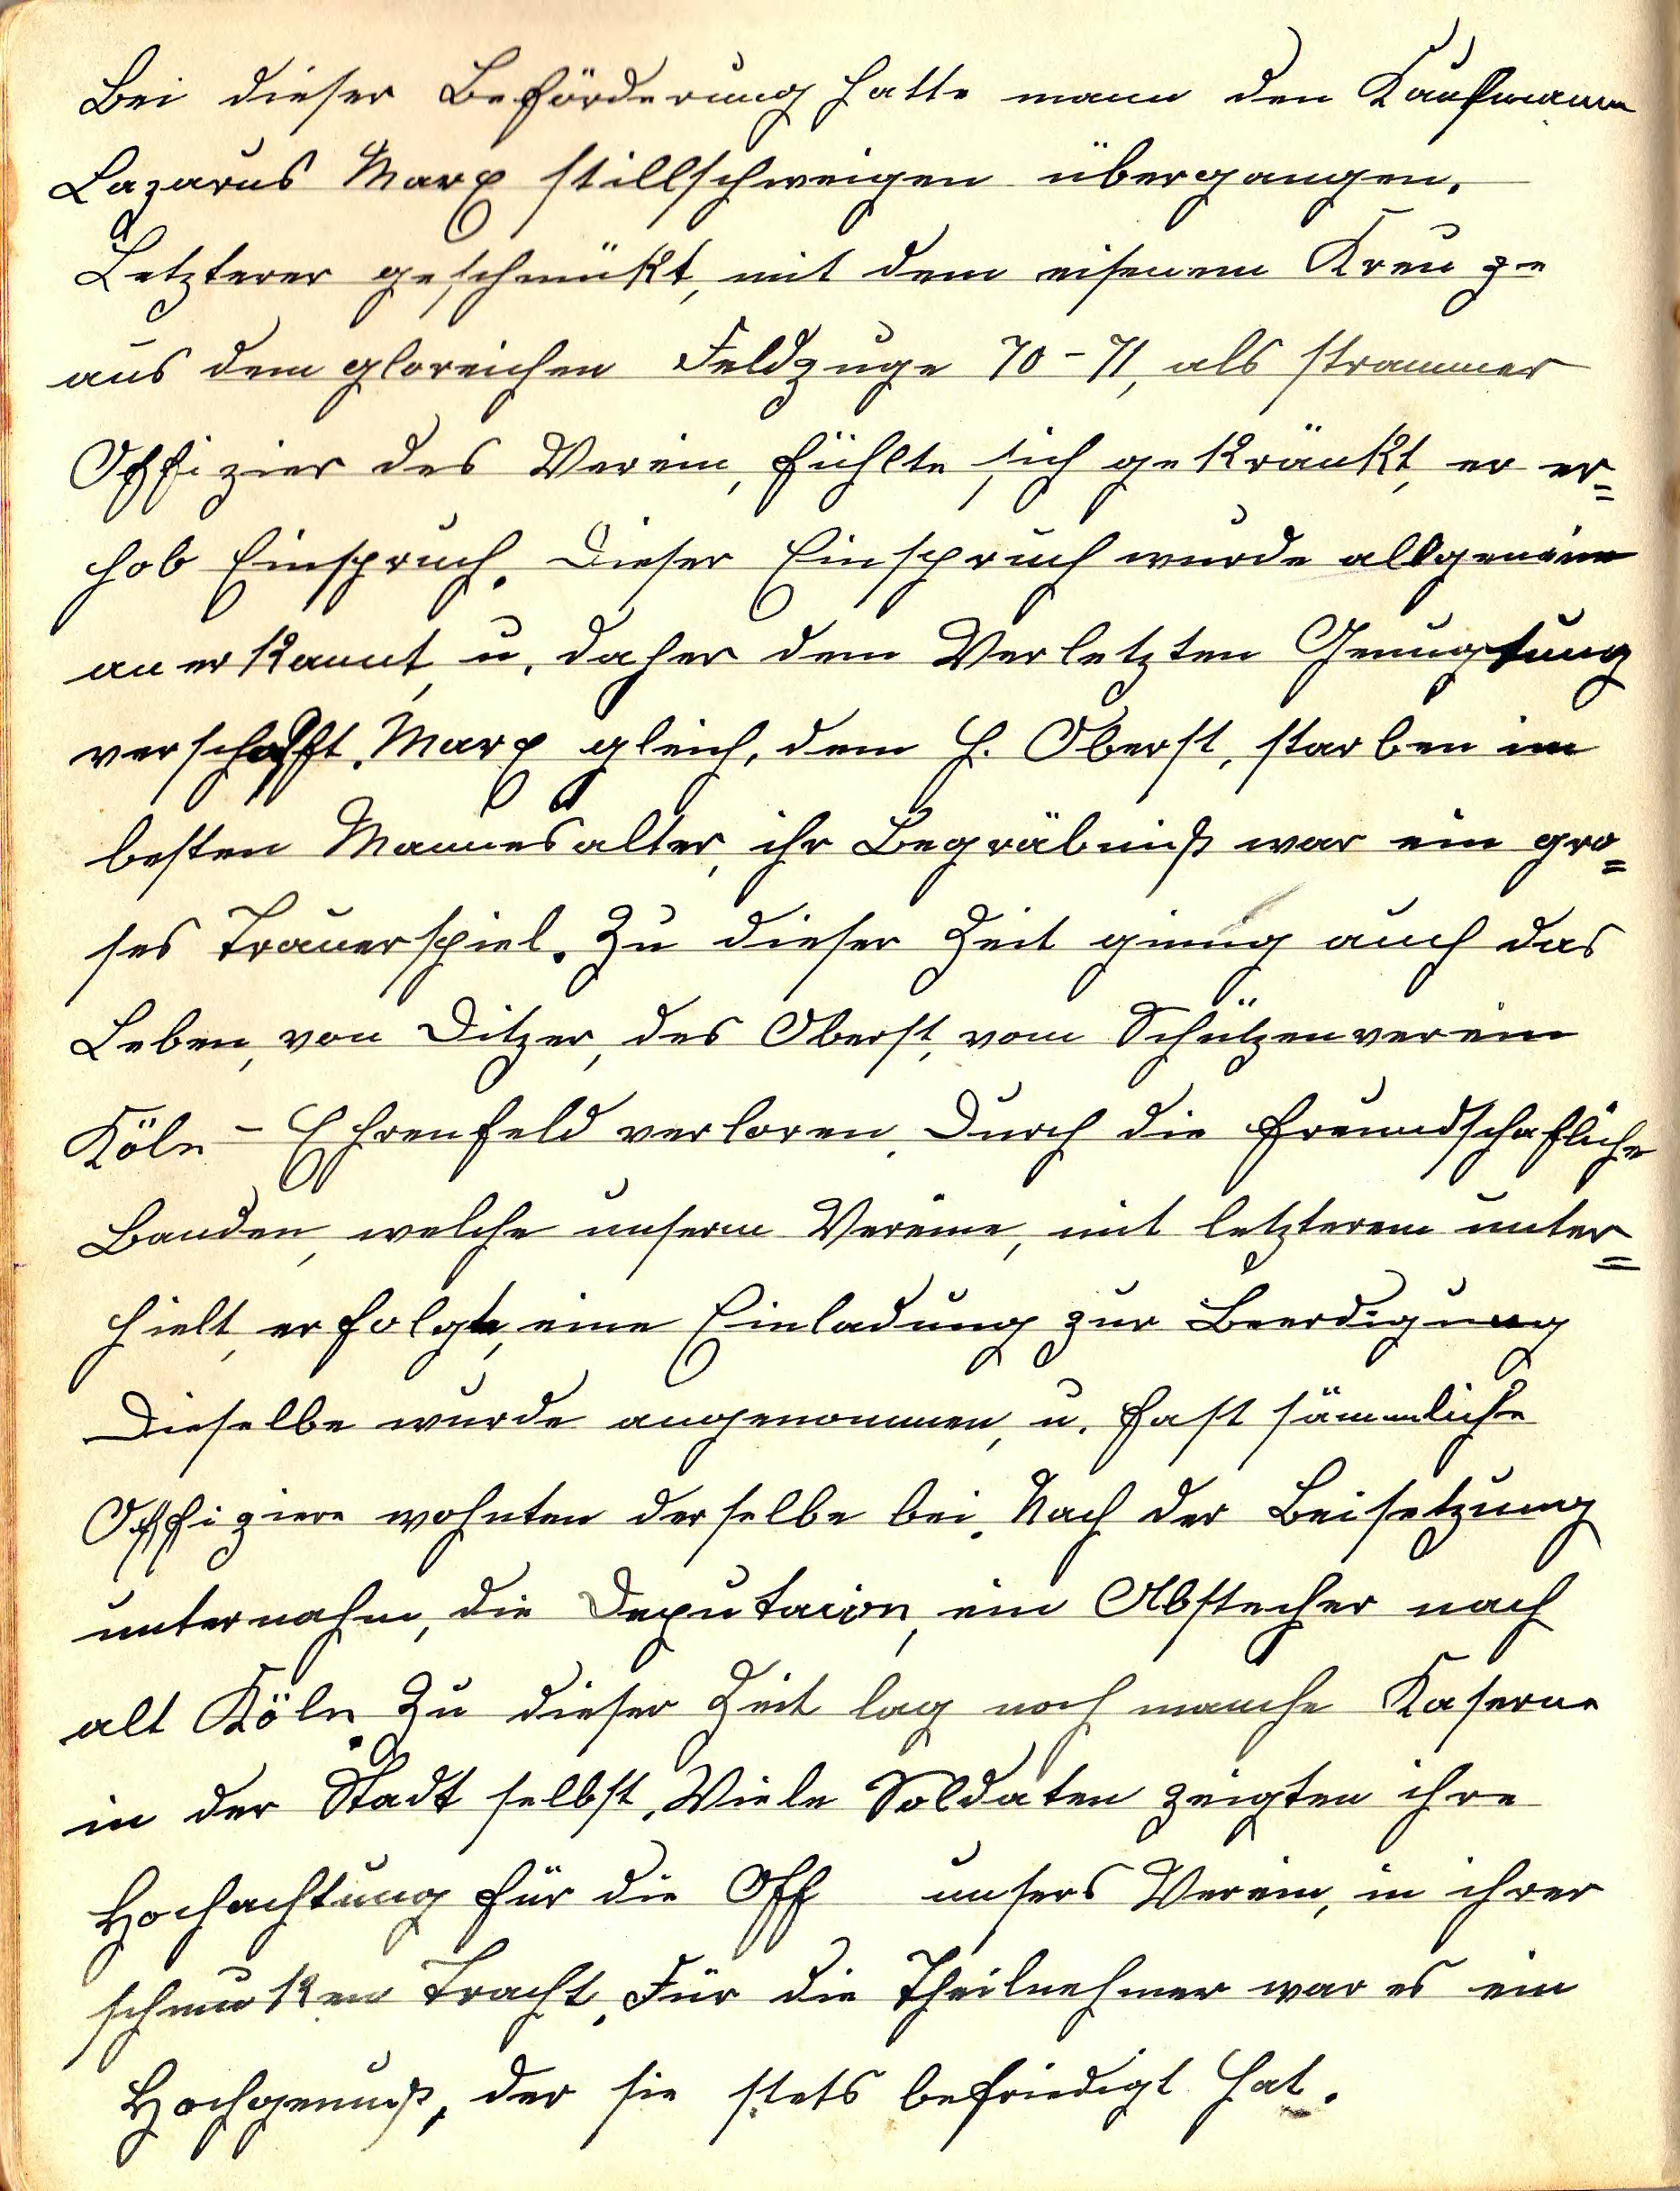 Bei dieser Beförderung hatte mann den Kaufmann
Lazarus Marx stillschweigen übergangen.
Letzterer geschmükt, mit dem eisenem Kreuze
aus dem gloreichen Feldzuge 70-71, als strammer
Offizier des Verein, fühlte sich gekränkt, er er=
hob Einspruch. Dieser Einspruch wurde allgemein
anerkannt, u. daher dem Verletzten Genugtung
verschafft. Marx gleich, dem H. Oberst, starben im
besten Mannesalter, ihr Begräbniß war ein gro=
ses Trauerspiel. Zu dieser Zeit ginng auch das
Leben, von Ditzer, des Oberst, vom Schützenverein
Köln-Ehrenfeld verloren. Durch die freundschafliche
Banden, welche unserm Vereine, mit letzterem unter=
hielt, erfolgte, eine Einladung zur Beerdigung
Dieselbe wurde angenommen, u. fast sämmliche
Offiziere wohnten derselbe bei. Nach der Beisetzung
unternahm, die Deputacion, ein Abstecher nach
alt Köln. Zu dieser Zeit lag noch manche Kaserne
in der Stadt selbst. Viele Soldaten zeigten ihre
Hochachtung für die Off unsers Verein, in ihrer
schmuken Tracht. Für die Theilnehmer war es ein
Hochgenuß, der sie stets befriedigt hat.